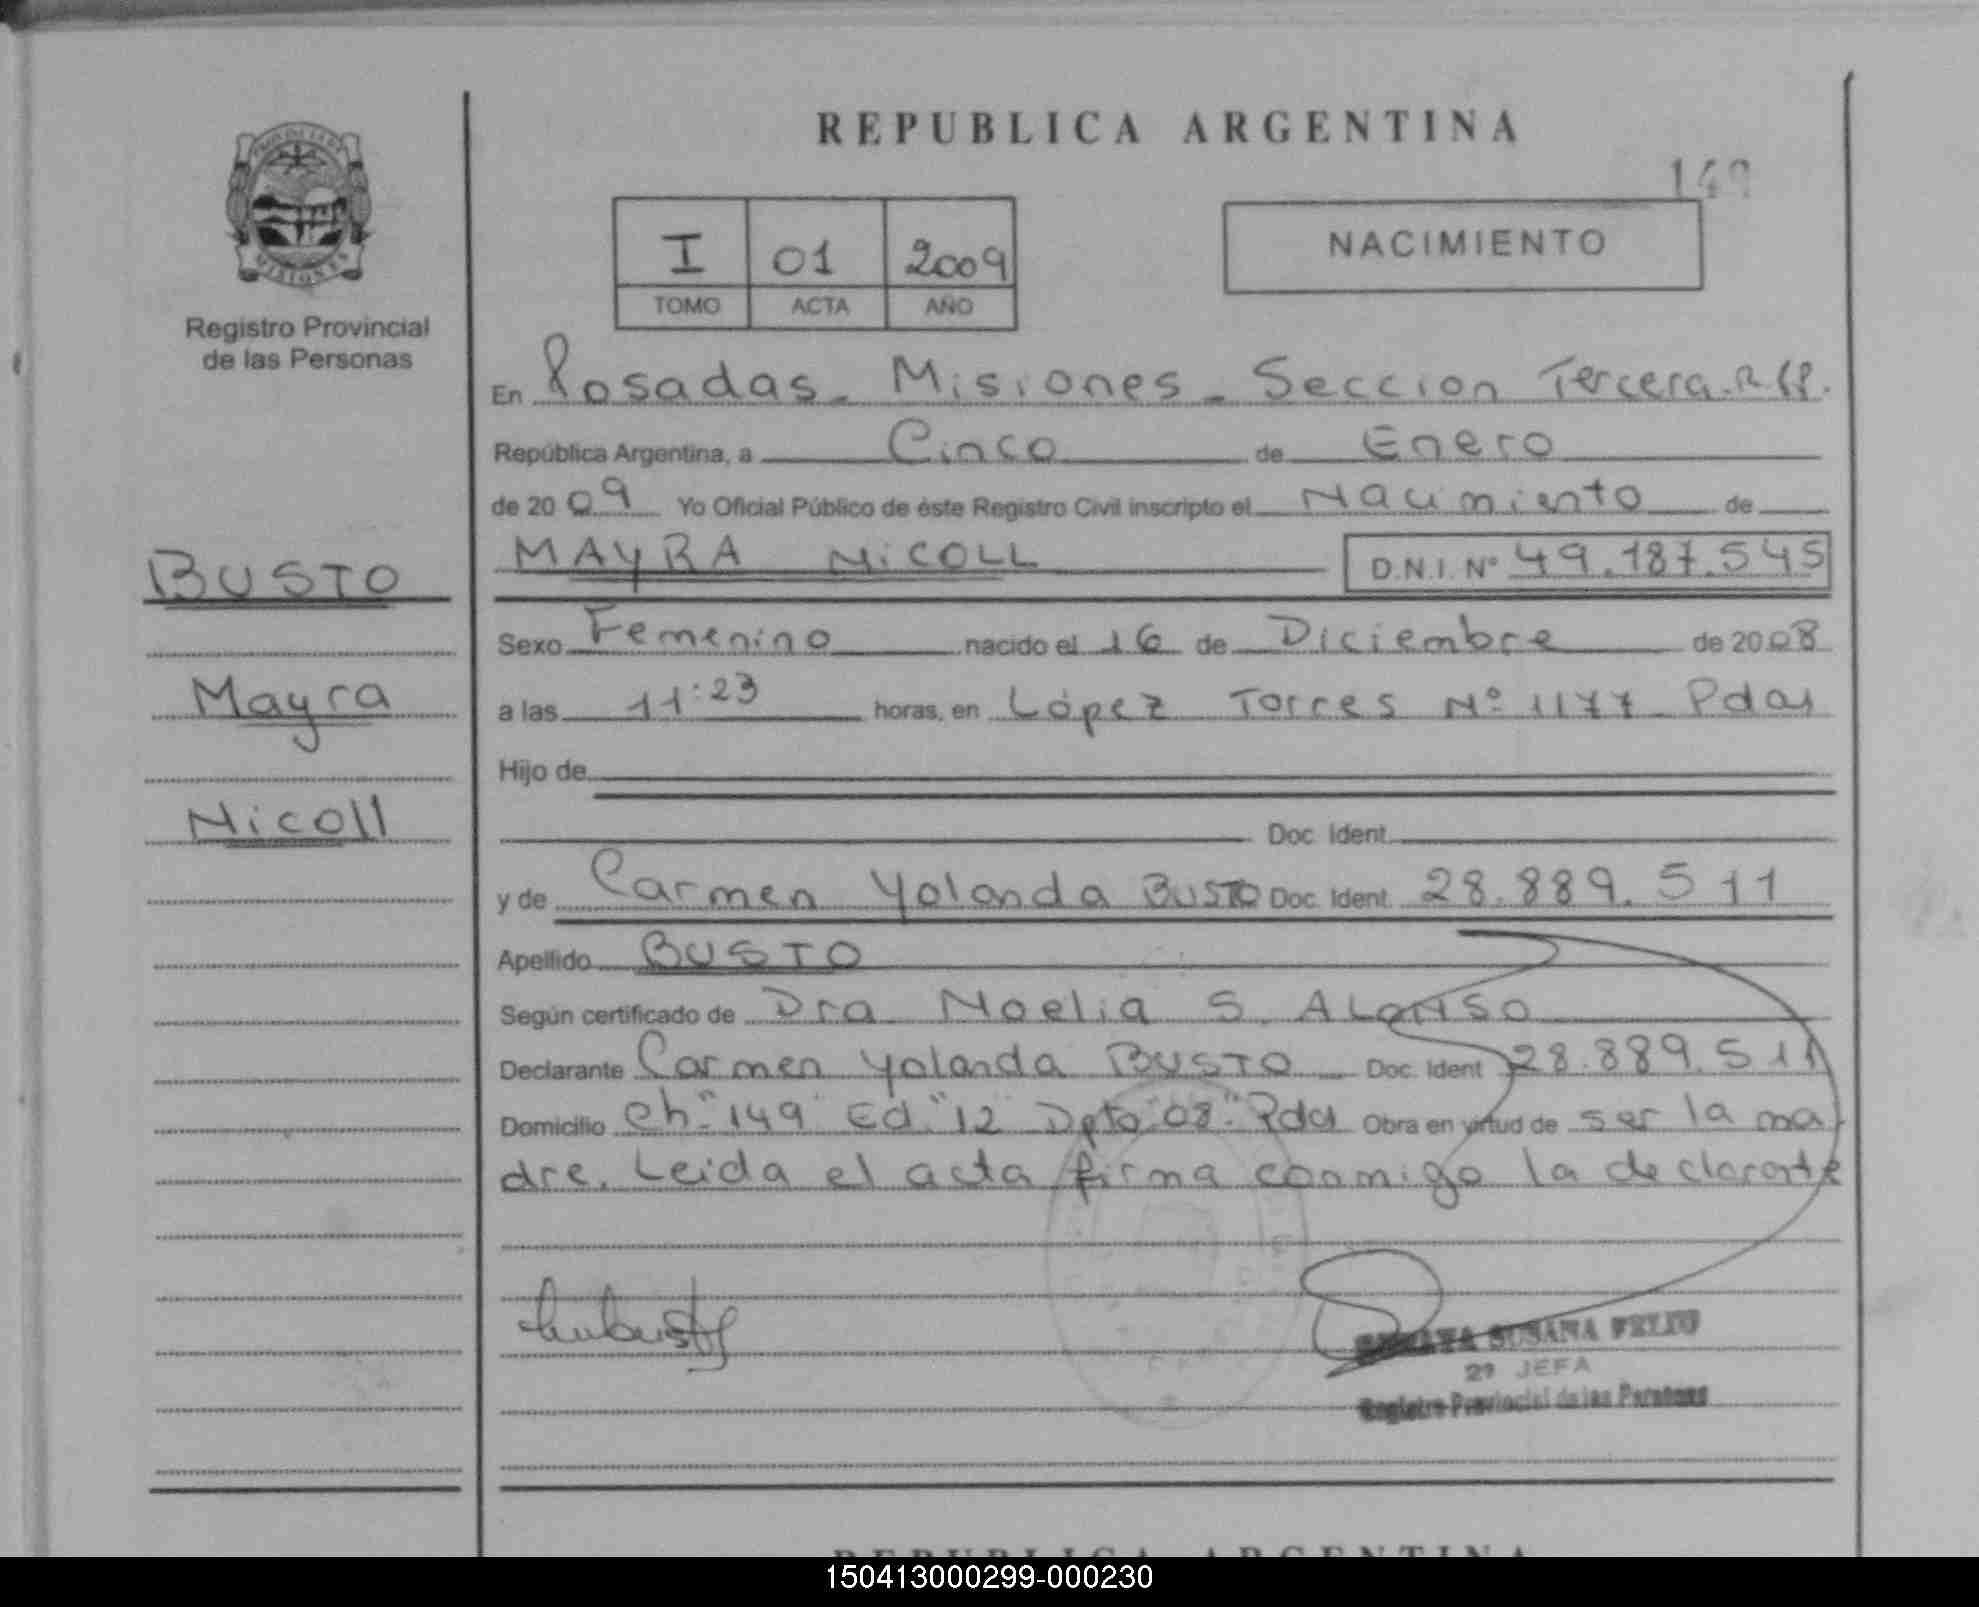 REPUBLICA ARGENTINA
149
PROVINCIA DE
MISIONES
Registro Provincial
de las Personas
I 01 2009
TOMO ACTA AÑO
NACIMIENTO
En Posadas - Misiones - Seccion Tercera. R.P.P.
República Argentina, a Cinco de Enero
de 2009 Yo Oficial Público de éste Registro Civil inscripto el Nacimiento de
MAYRA NICOLL D.N.I. Nº 49.187.545
BUSTO
Sexo Femenino nacido el 16 de Diciembre de 2008
Mayra
a las 11:23 horas, en López Torres Nº 1177 Pdas
Hijo de
Nicoll
Doc. Ident.
y de Carmen Yolanda BUSTO Doc. Ident. 28.889.511
Apellido BUSTO
Según certificado de Dra Noelia S. ALONSO
Declarante Carmen Yolanda BUSTO - Doc. Ident 28.889.511
Domicilio Ch. "149" Ed. "12" Dpto "08" Pdas Obra en virtud de ser la ma
dre. Leida el acta firma conmigo la declarante
SUSANA FELIU
2ª JEFA
Registro Provincial de las Personas
REPUBLICA ARGENTINA
150413000299-000230